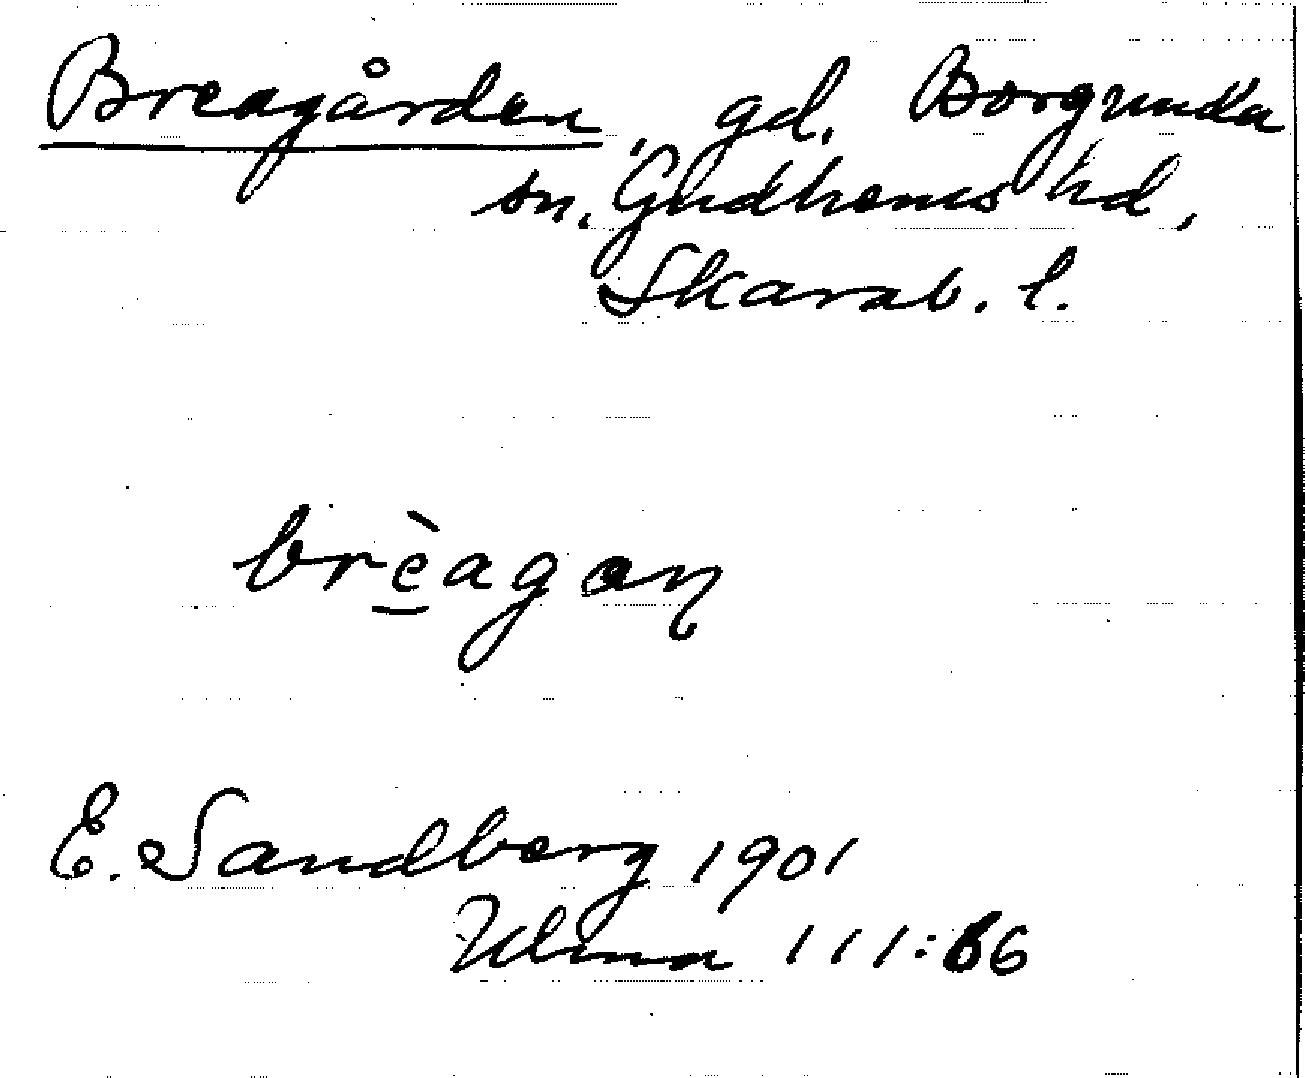 Breagården, gd. Borgunda
sn. Gudhems hd,
Skarab. l.
brèagaɳ
E. Sandberg 1901
Ulma 111:66